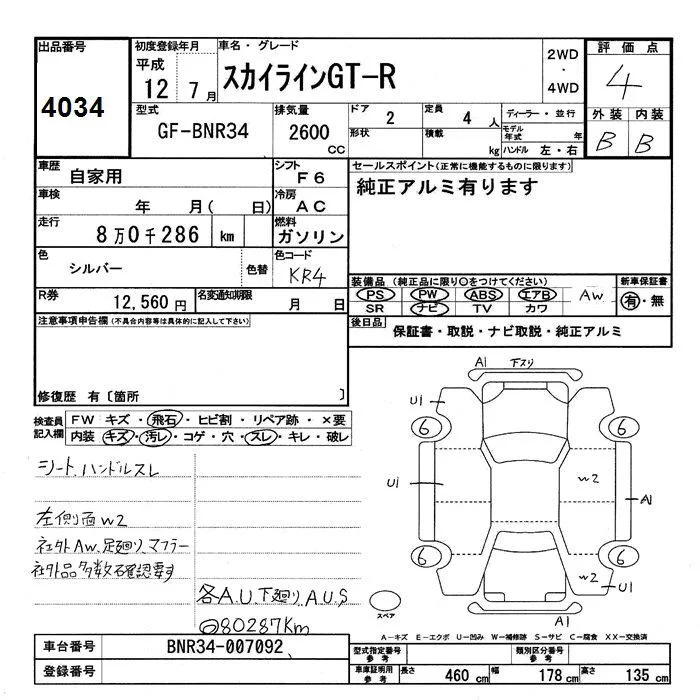 出品番号
4034
初度登録年月
平成
12 7月
車名・グレード
スカイラインGT-R
2WD
・
4WD
評価点
4
外装 内装
B B
型式
GF-BNR34
排気量
2600 cc
ドア 2
形状
定員 4 人
積載 kg
ディーラー・並行
モデル年式 年
ハンドル 左・右
車歴
自家用
シフト
F6
車検
年 月( 日)
冷房
AC
走行
8万0千286 km
燃料
ガソリン
色
シルバー
色替
色コード
KR4
R券
12,560円
名変通知期限
月 日
セールスポイント(正常に機能するものに限ります)
純正アルミ有ります
装備品 (純正品に限り○をつけてください)
PS PW ABS エアB AW
SR ナビ TV カワ
新車保証書
有・無
後日品
保証書・取説・ナビ取説・純正アルミ
注意事項申告欄(不具合内容等は具体的に記入して下さい)
修復歴 有〔箇所 〕
検査員記入欄
FW キズ・飛石・ヒビ割・リペア跡・×要
内装 キズ・汚レ・コゲ・穴・スレ・キレ・破レ
シート、ハンドルスレ
左側面W2
社外AW、足廻り、マフラー
社外品多数確認要す
各A.U、下廻り、A.U.S
◎80287Km
A1 下スリ
U1
6
6
U1
W2
A1
6
6
W2
U1
A1
スペア
A-キズ E-エクボ U-凹み W-補修跡 S-サビ C-腐食 XX-交換済
車台番号
BNR34-007092
登録番号
型式指定番号
参考
類別区分番号
参考
車庫証明用
参考
長さ 460 cm
幅 178 cm
高さ 135 cm